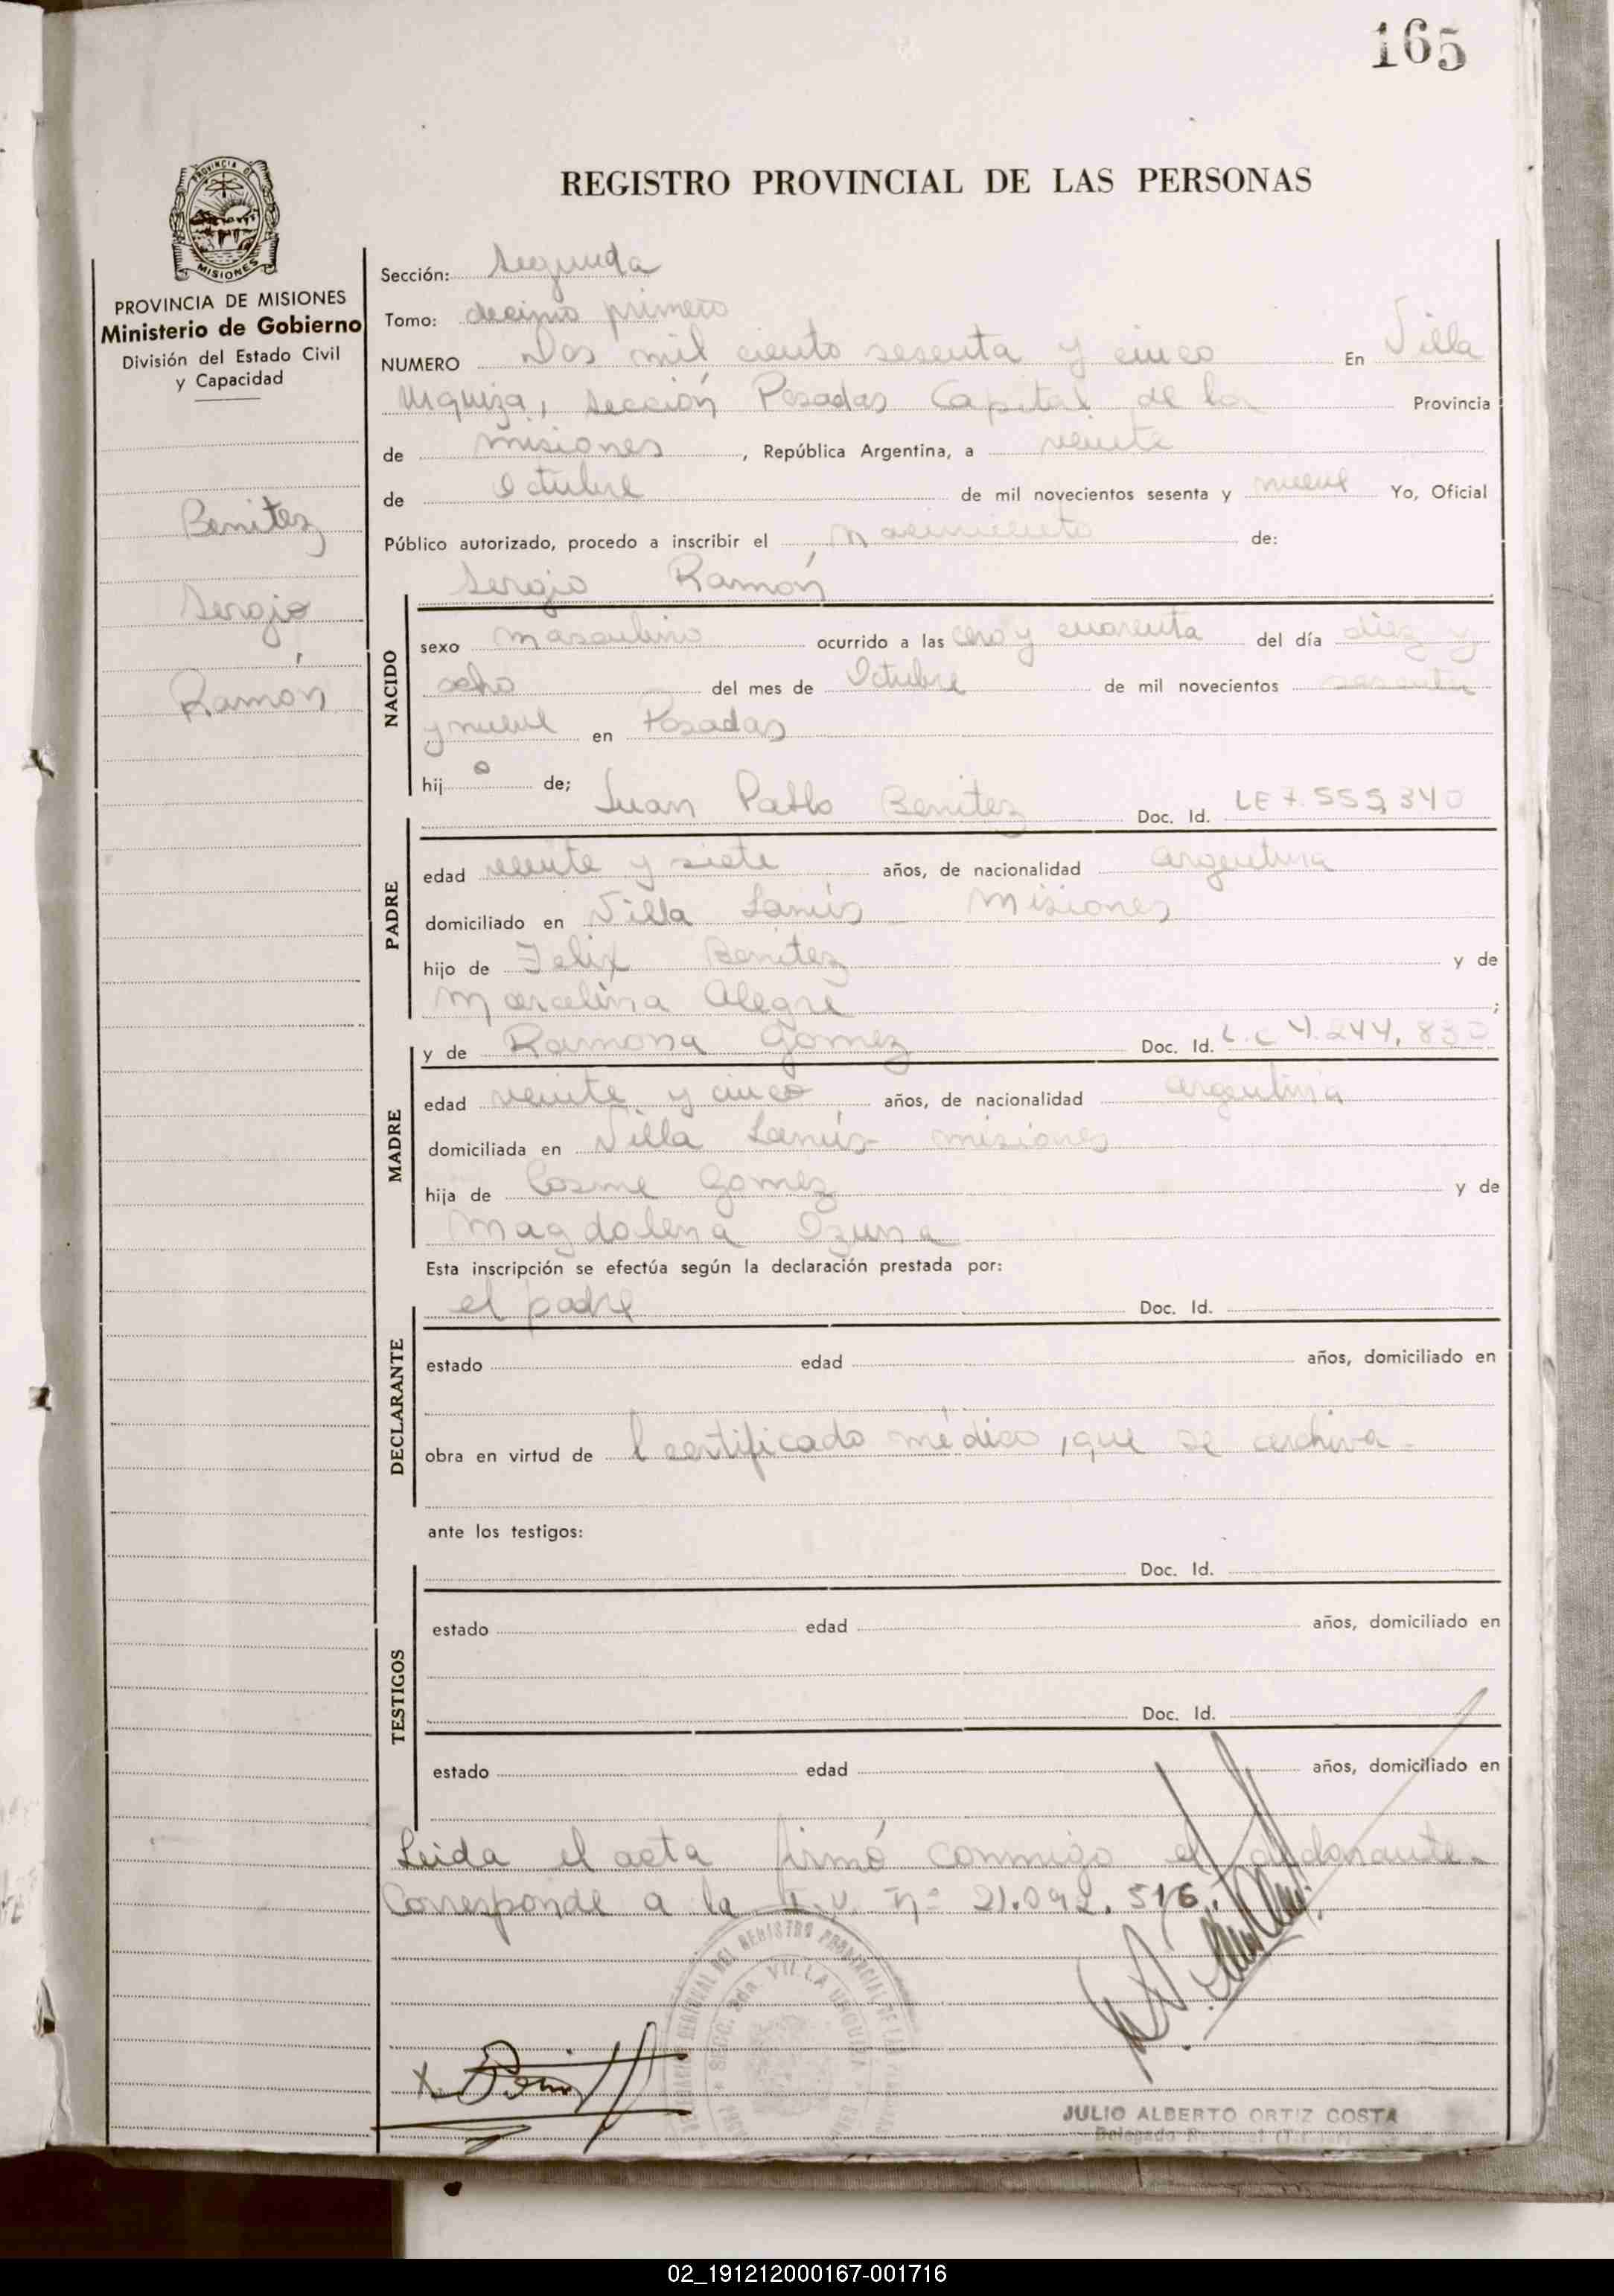 165
REGISTRO PROVINCIAL DE LAS PERSONAS
PROVINCIA DE
MISIONES
PROVINCIA DE MISIONES
Ministerio de Gobierno
División del Estado Civil
y Capacidad
Benitez
Sergio
Ramón
Sección: Segunda
Tomo: decimo primero
NUMERO Dos mil ciento sesenta y cinco En Villa
Urquiza, Sección Posadas Capital de la Provincia
de misiones, República Argentina, a veinte
de Octubre de mil novecientos sesenta y nueve Yo, Oficial
Público autorizado, procedo a inscribir el nacimiento de:
Sergio Ramón
NACIDO
sexo masculino ocurrido a las cero y cuarenta del día diez y
ocho del mes de Octubre de mil novecientos sesenta
y nueve en Posadas
hijo de; Juan Pablo Benitez Doc. Id. LE 7.555.340
PADRE
edad veinte y siete años, de nacionalidad argentina
domiciliado en Villa Lanús Misiones
hijo de Felix Benitez y de
Marcelina Alegre;
y de Ramona Gomez Doc. Id. L.C 4.244.830
MADRE
edad veinte y cinco años, de nacionalidad argentina
domiciliada en Villa Lanús misiones
hija de Cosme Gomez y de
Magdalena Ozuna
Esta inscripción se efectúa según la declaración prestada por:
el padre Doc. Id.
DECLARANTE
estado edad años, domiciliado en
obra en virtud de l certificado médico, que se archiva.
ante los testigos:
Doc. Id.
TESTIGOS
estado edad años, domiciliado en
Doc. Id.
estado edad años, domiciliado en
Leida el acta firmó conmigo el declarante.
Corresponde a la I.y. nº 21.092.516.
REGIONAL DEL REGISTRO PROVINCIAL DE LAS
SECC. 2da. VILLA URQUIZA
JULIO ALBERTO ORTIZ COSTA
02_191212000167-001716